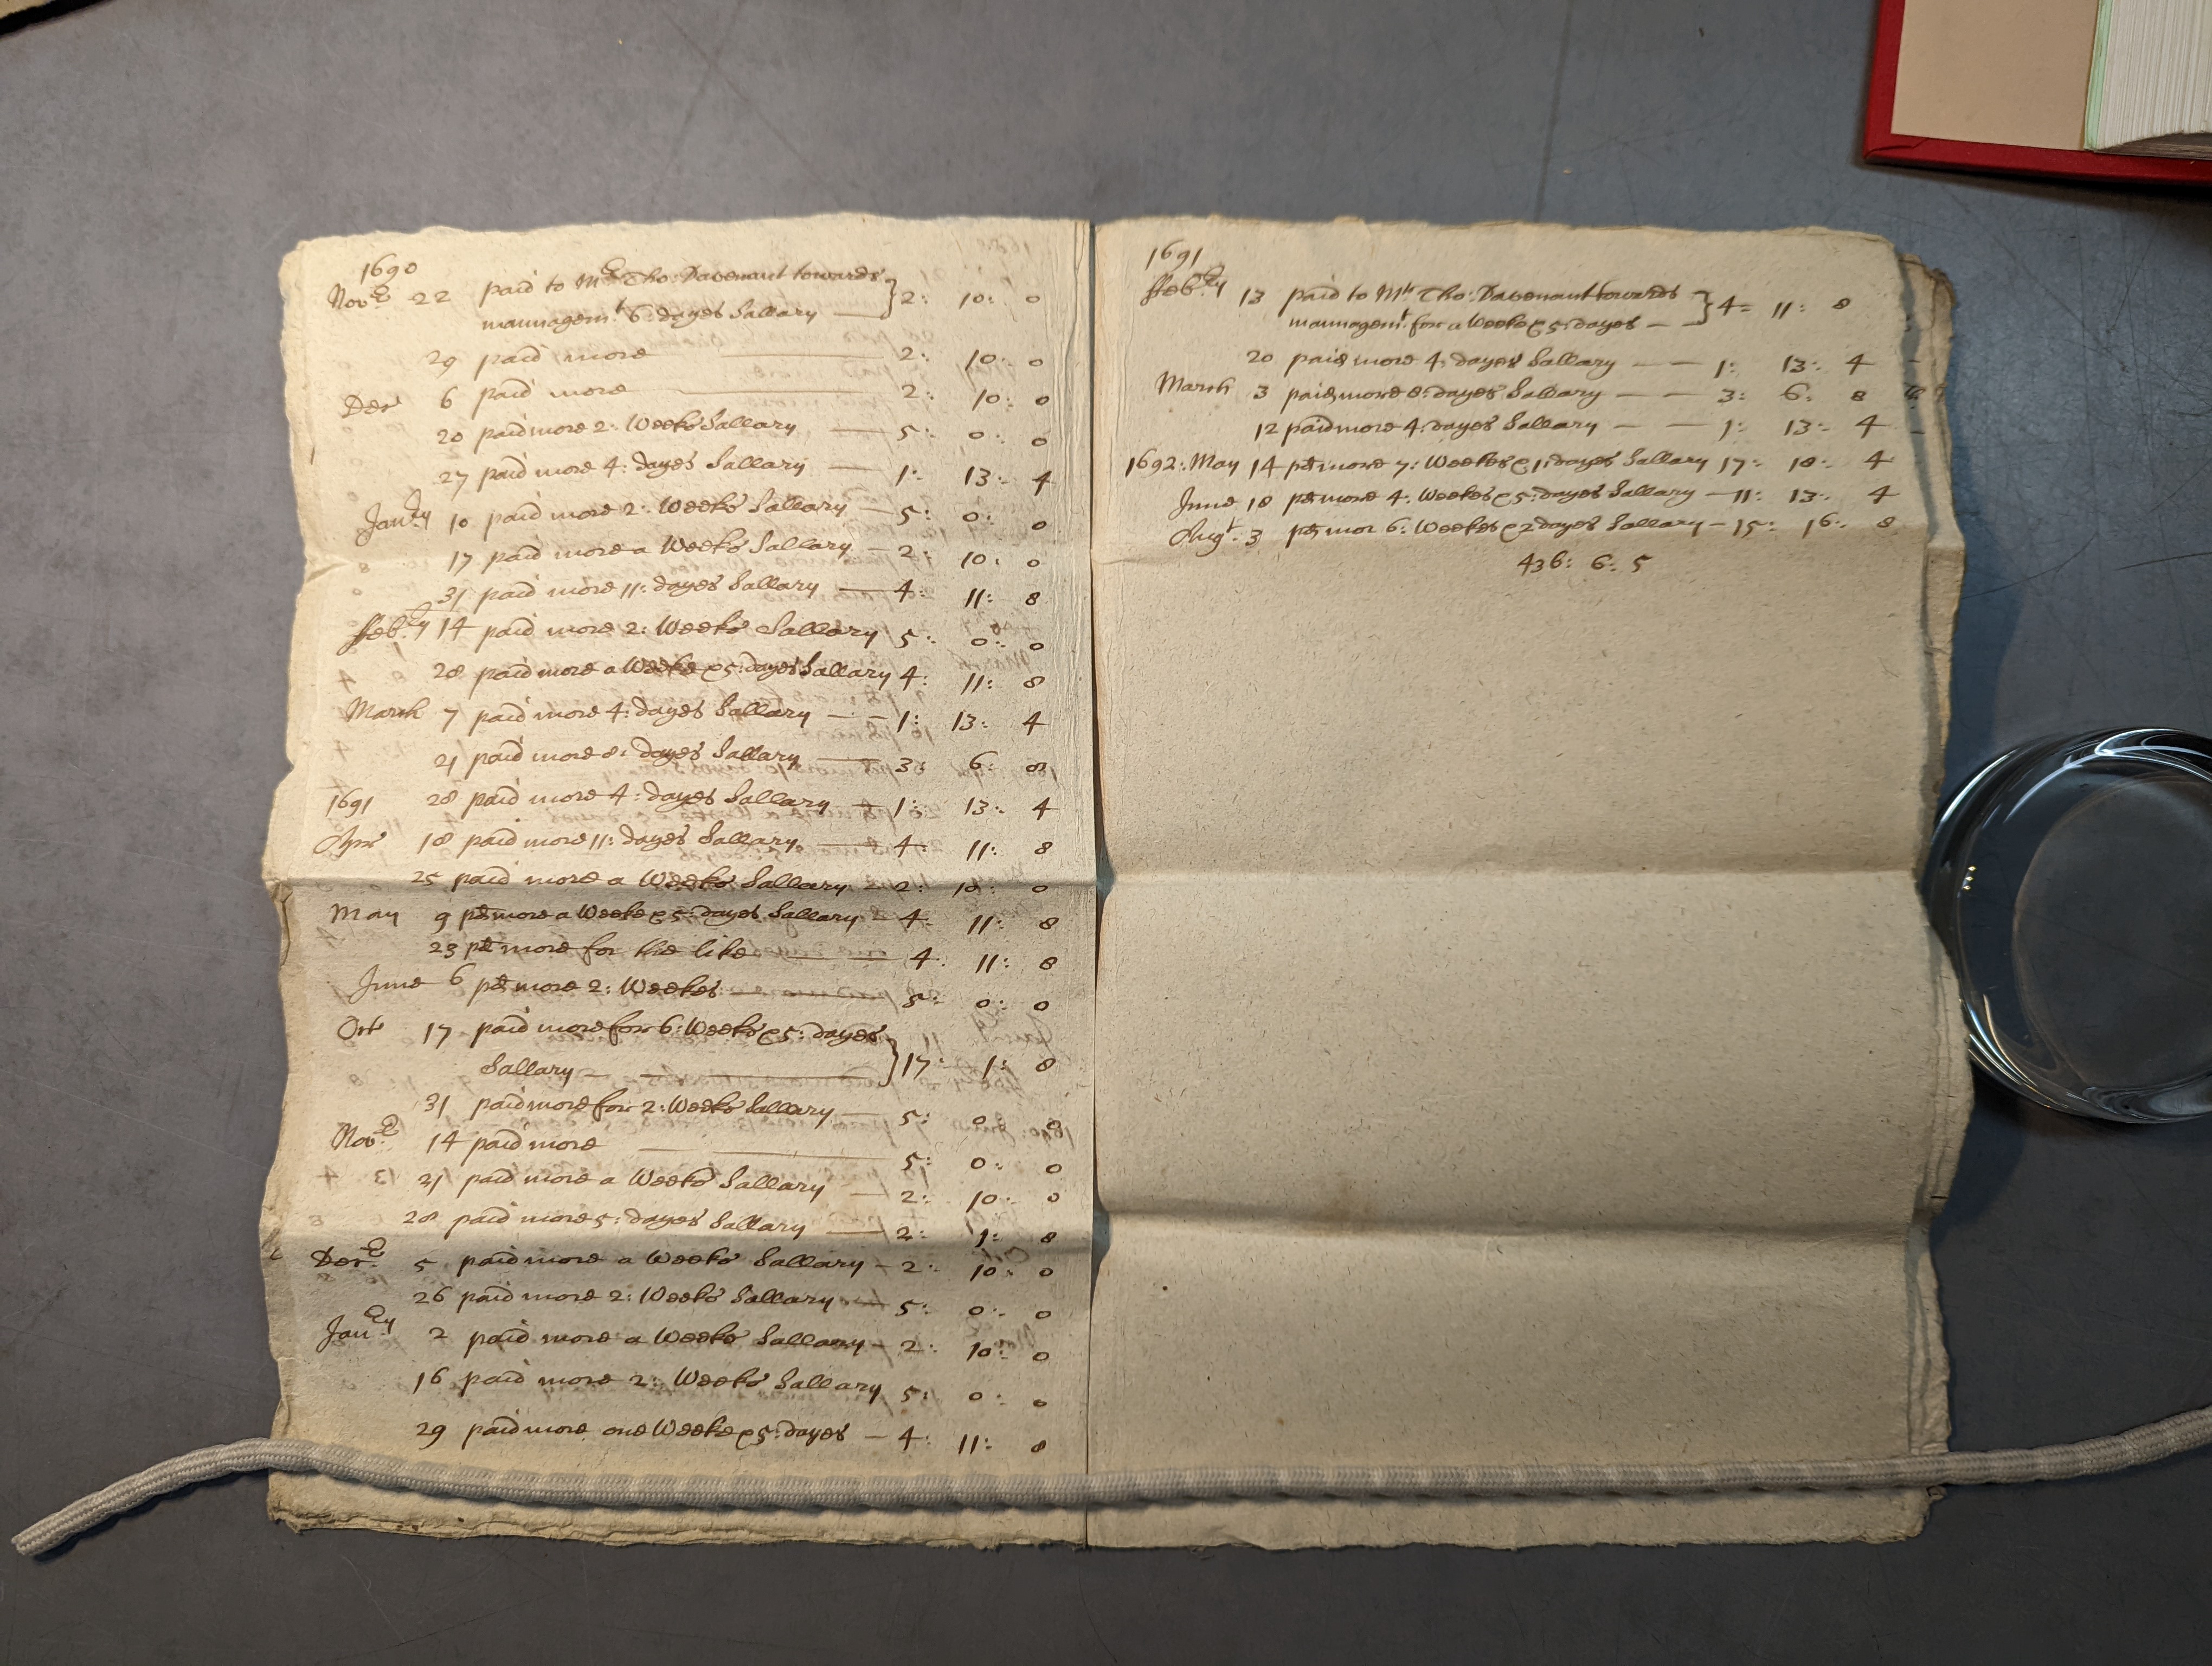 1690
Novr 22 paid to Mr Tho: Davenant towards
mannagemt 6: dayes Sallary — } 2: 10: 0
29 paid more — 2: 10: 0
Decr 6 paid more — 2: 10: 0
20 paid more 2: Weeks Sallary — 5: 0: 0
27 paid more 4: dayes Sallary — 1: 13: 4
Janry 10 paid more 2: Weeks Sallary — 5: 0: 0
17 paid more a Weeks Sallary — 2: 10: 0
31 paid more 11: dayes Sallary — 4: 11: 8
Febry 14 paid more 2: Weeks Sallary 5: 0: 0
28 paid more a Weeke & 5: dayes Sallary 4: 11: 8
March 7 paid more 4: dayes Sallary — 1: 13: 4
21 paid more 8: dayes Sallary — 3: 6: 8
1691 28 paid more 4: dayes Sallary — 1: 13: 4
Apr 18 paid more 11: dayes Sallary — 4: 11: 8
25 paid more a Weeks Sallary — 2: 10: 0
May 9 pd more a Weeke & 5: dayes Sallary — 4: 11: 8
23 pd more for the like — 4: 11: 8
June 6 pd more 2: Weekes — 5: 0: 0
Octr 17 paid more for 6: Weeks & 5: dayes
Sallary — } 17: 1: 8
31 paid more for 2: Weeks Sallary — 5: 0: 0
Novr 14 paid more — 5: 0: 0
21 paid more a Weeks Sallary — 2: 10: 0
28 paid more 5: dayes Sallary — 2: 1: 8
Decr 5 paid more a Weeks Sallary — 2: 10: 0
26 paid more 2: Weeks Sallary — 5: 0: 0
Janry 2 paid more a Weeks Sallary — 2: 10: 0
16 paid more 2: Weeks Sallary 5: 0: 0
29 paid more one Weeke & 5: dayes — 4: 11: 8
1691
Febry 13 paid to Mr Tho: Davenant towards
mannagemt for a Weeke & 5: dayes — } 4: 11: 8
20 paid more 4: dayes Sallary — 1: 13: 4
March 3 paid more 8: dayes Sallary — 3: 6: 8
12 paid more 4: dayes Sallary — 1: 13: 4
1692: May 14 pd more 7: Weekes & 1: dayes Sallary 17: 18: 4
June 18 pd more 4: Weekes & 5: dayes Sallary — 11: 13: 4
Augt 3 pd mor 6: Weekes & 2 dayes Sallary — 15: 16: 8
436: 6: 5